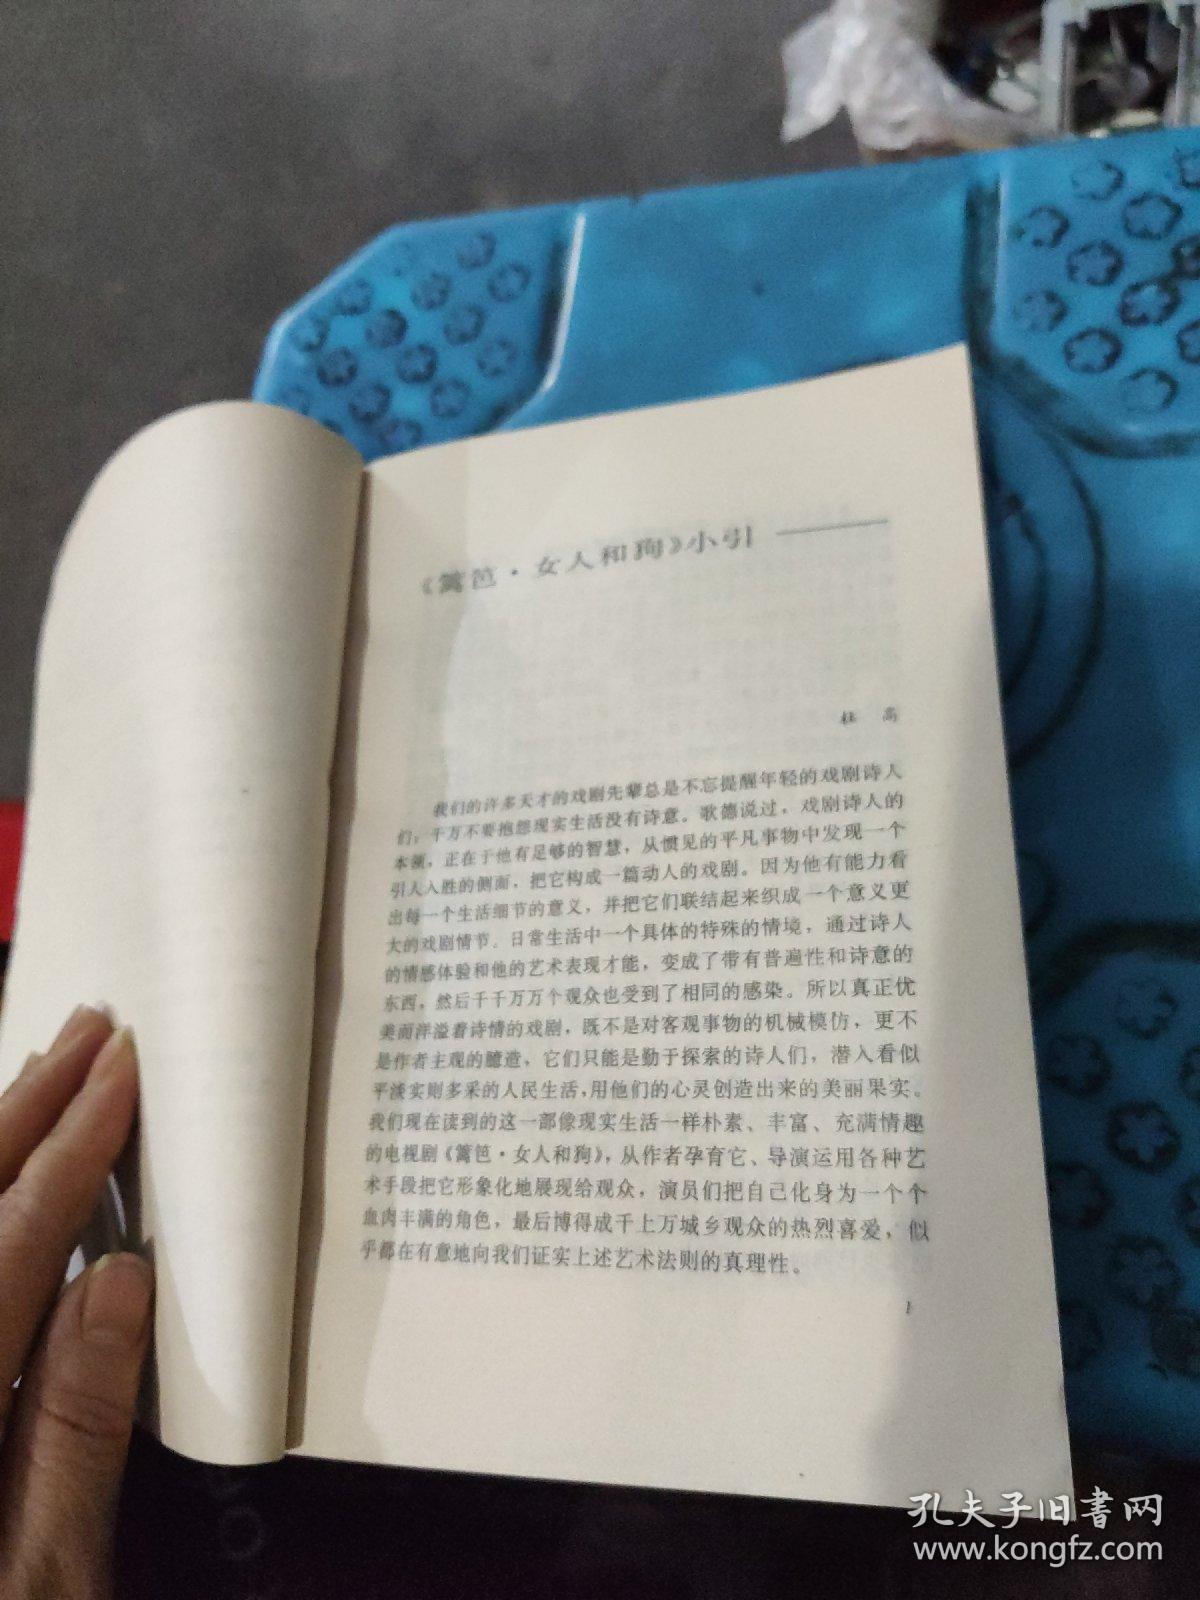 《篱笆·女人和狗》小引
杜 高
我们的许多天才的戏剧先辈总是不忘提醒年轻的戏剧诗人
们，千万不要抱怨现实生活没有诗意。歌德说过，戏剧诗人的
本领，正在于他有足够的智慧，从惯见的平凡事物中发现一个
引人入胜的侧面，把它构成一篇动人的戏剧。因为他有能力看
出每一个生活细节的意义，并把它们联结起来织成一个意义更
大的戏剧情节。日常生活中一个具体的特殊的情境，通过诗人
的情感体验和他的艺术表现才能，变成了带有普遍性和诗意的
东西，然后千千万万个观众也受到了相同的感染。所以真正优
美而洋溢着诗情的戏剧，既不是对客观事物的机械模仿，更不
是作者主观的臆造，它们只能是勤于探索的诗人们，潜入看似
平淡实则多采的人民生活，用他们的心灵创造出来的美丽果实。
我们现在读到的这一部像现实生活一样朴素、丰富、充满情趣
的电视剧《篱笆·女人和狗》，从作者孕育它、导演运用各种艺
术手段把它形象化地展现给观众，演员们把自己化身为一个个
血肉丰满的角色，最后博得成千上万城乡观众的热烈喜爱，似
乎都在有意地向我们证实上述艺术法则的真理性。
1
孔夫子旧书网
www.kongfz.com